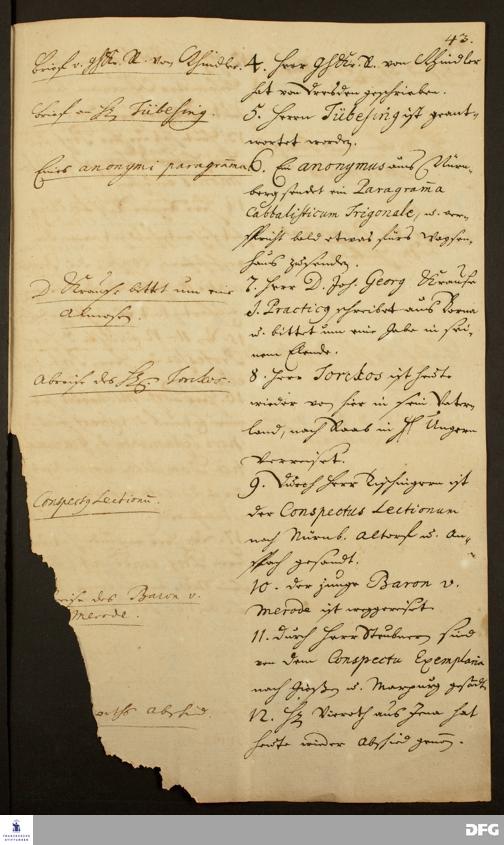 43.
Brief v. Ghdr. R. von Schindler.
4. Herr Ghdr. R. von Schindler
hat von Dresden geschrieben.
Brief an H. Tübesing.
5. Herrn Tübesing ist geant-
wortet worden.
Eines anonymi paragramma
6. Ein anonymus aus Nürn-
berg sendet ein Paragramma
Cabbalisticum Trigonale, u. ver-
spricht bald etwas fürs Waysen-
haus zu senden.
D. Krause bittet um eine
Almosen.
7. Herr D. Joh. Georg Krause
J. Practicus schreibet aus Borna
u. bittet um eine Gabe in sei-
nem Elende.
Abreise des H. Torckos.
8. Herr Torckos ist heute
wieder von hier in sein Vater-
land, nach Raab in Ungarn
verreiset.
Conspectus Lectionum.
9. Durch Herr ist
der Conspectus Lectionum
nach Nürnb. Altorf u. An-
spach gesandt.
des Baron v.
Merode.
10. der junge Baron v.
Merode ist weggereiset.
11. durch Herr Steubern sind
von dem Conspectu Exemplaria
nach Gießen u. Marpurg gesandt
Abschied.
12. H. Vieroth aus Jena hat
heute wieder Abschied genom.
FRANCKESCHE STIFTUNGEN
DFG